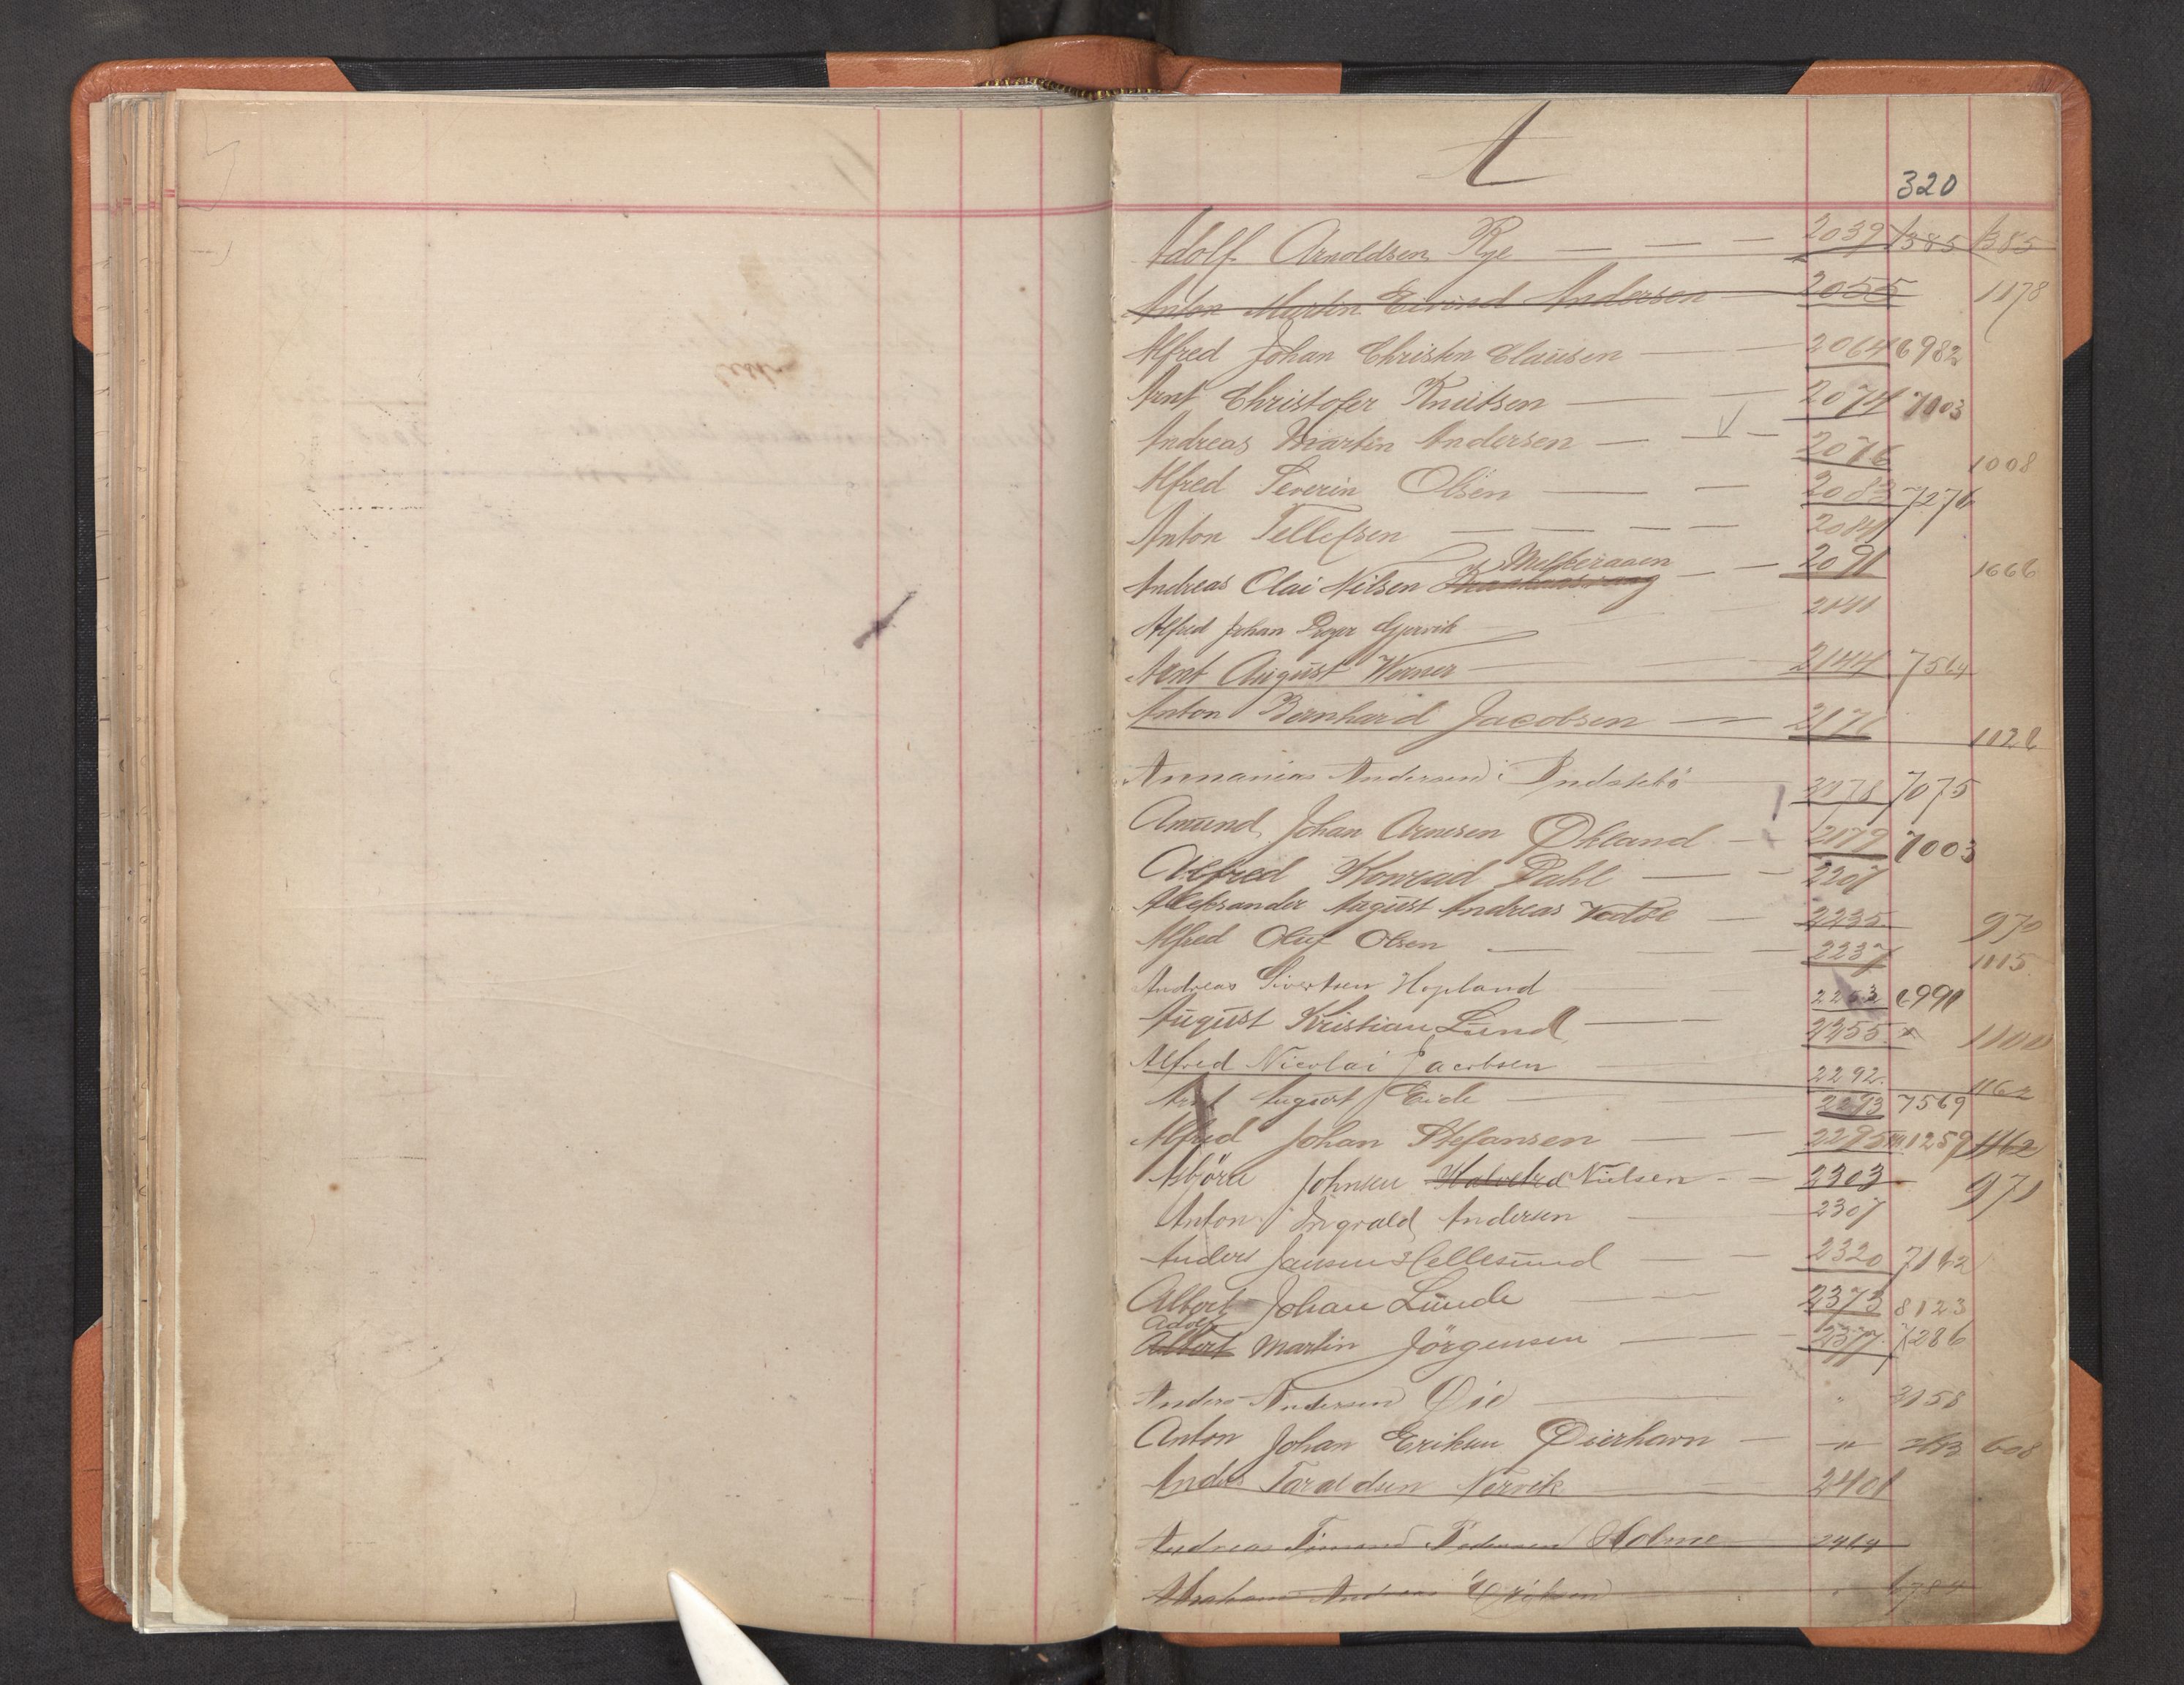 A
320
Adolf Arnoldsen Rye — — — 2039 1385 1385
Anton Martin Eivind Andersen — 2055 1178
Alfred Johan Christen Clausen — 2064 6982
Arnt Christofer Knutsen — 2074 7003
Andreas Martin Andersen — — 2076 1008
Alfred Severin Olsen — — 2083 7276
Anton Tellefsen — — — — 2084
Andreas Olai Nilsen — — 2091 1666
Alfred Johan Gjervik
Arnt August Werner — 2144 7564
Anton Bernhard Jacobsen — 2171
Annanias Andersen Indstebö 2178 7075
Amund Johan Arnesen Økland — 2179 7003
Alfred Konrad Dahl — — 2207
Aleksander August Andreas Vedöe — 2235 970
Alfred Oluf Olsen — — — 2237 1115
Andreas Sivertsen Hopland 2253 6991
August Kristian Lund — — 2255 1100
Alfred Nicolai Jacobsen 2292 1162
Arnt August Eide — 2293 7569
Alfred Johan Stefansen — — 2295 1259 1162
Asbjörn Johnsen Nielsen — — 2303 971
Anton Ingvald Andersen — 2307
Anders Jansen Hellesund — — 2320
Albert Johan Lunde — — 2373 8123
Adolf
Albert Martin Jörgensen — — — 2377 7286
Anders Andersen Øie — " 3158
Anton Johan Eriksen Øierhavn — " 608
Anders Taraldsen Nervik — 2401
Andreas Pedersen Holme 2414
Abraham Andreas Eriksen " 6784